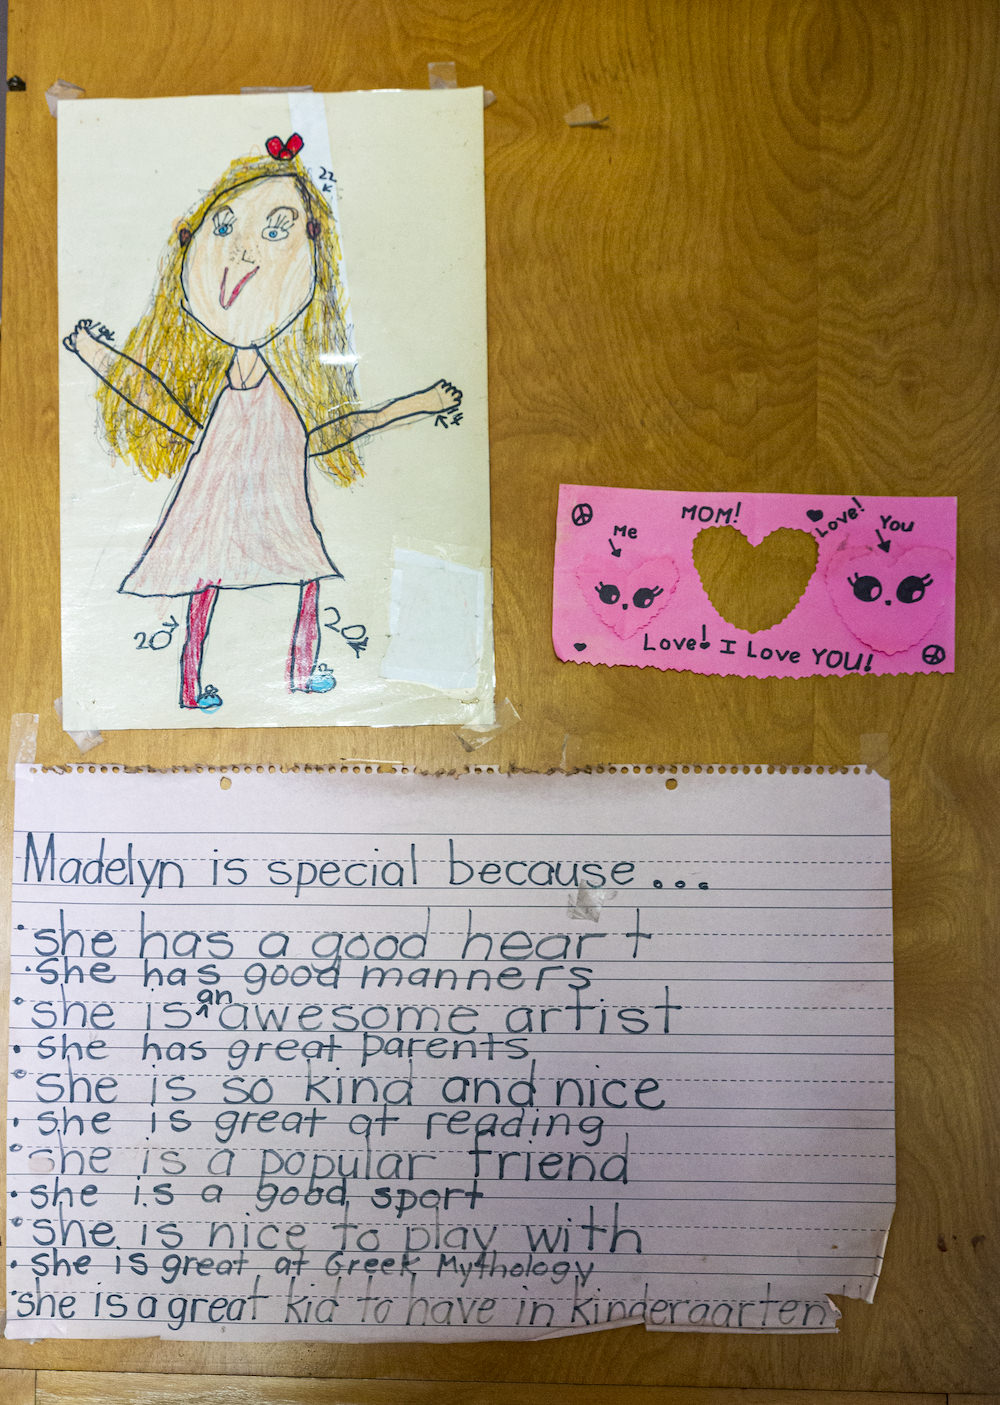 22
4
20
20
12
MOM!
Love!
Me
You
Love! I Love YOU!
Madelyn is special because...
• she has a good heart
• she has good manners
• she is an awesome artist
• she has great parents
• she is so kind and nice
• she is great at reading
• she is a popular friend
• she is a good sport
• she is nice to play with
• she is great at Greek Mythology
• she is a great kid to have in kindergarten